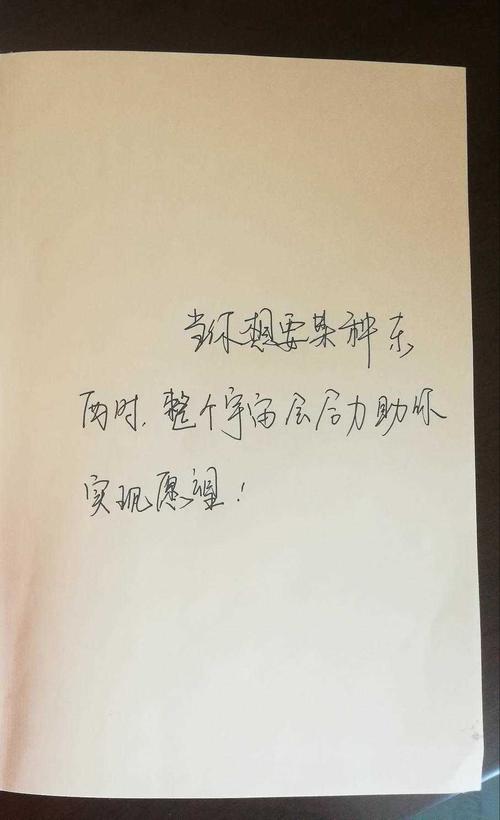 当你想要某种东
西时，整个宇宙会合力助你
实现愿望！